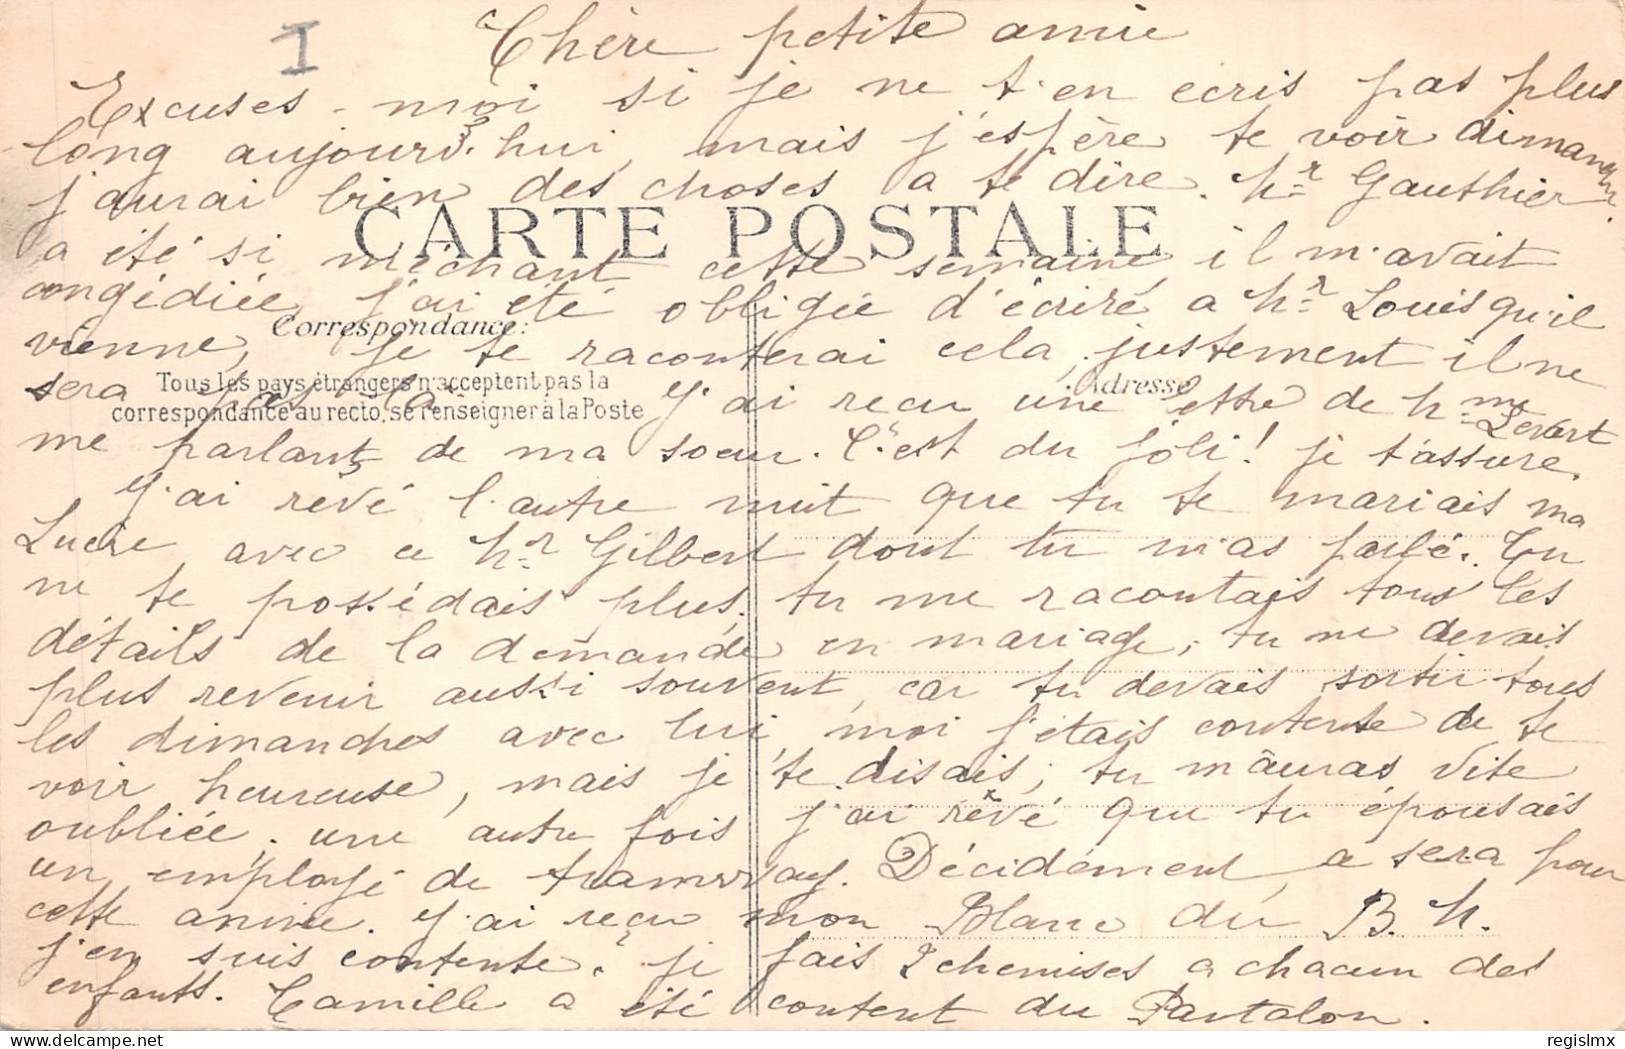 I
Chère petite amie
Excuses-moi si je ne t'en écris pas plus
long aujourd'hui, mais j'espère te voir dimanche
j'aurai bien des choses a te dire. Mr Gauthier
CARTE POSTALE
a été si méchant cette semaine il m'avait
congédiée, j'ai été obligée d'écrire a Mr Louis qu'il
Correspondance:
vienne, je te raconterai cela, justement il ne
Tous les pays étrangers n'acceptent pas la
Adresse
sera pas là. J'ai reçu une lettre de Mme
correspondance au recto, se renseigner à la Poste
me parlant de ma soeur. C'est du joli! je t'assure.
J'ai rêvé l'autre nuit que tu te mariais ma
Lucie avec ce Mr Gilbert dont tu m'as parlé. Tu
ne te possédais plus, tu me racontais tous les
détails de la demande en mariage; tu ne devais
plus revenir aussi souvent, car tu devais sortir tous
les dimanches avec lui, moi j'étais contente de te
voir heureuse, mais je te disais; tu m'auras vite
oubliée. une autre fois j'ai rêvé que tu épousais
un employé de tramway. Décidément, ce sera pour
cette année. J'ai reçu mon Blanc du B. M.
j'en suis contente. je fais 2 chemises a chacun des
enfants. Camille a été content du Pantalon.
regislmx